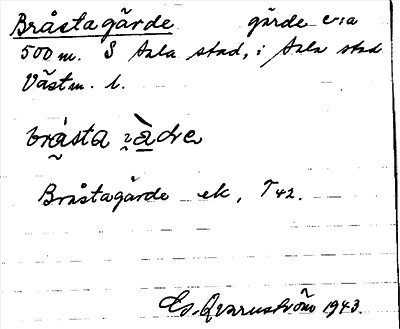 Bråstagärde gärde c:a
500 m. S Sala stad, i Sala stad
Västm. l.
bråsta
Bråstagärde ek, T42.
Es. Qvarnström 1943.